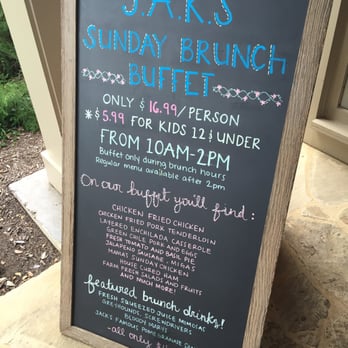 J.A.K'S
SUNDAY BRUNCH
BUFFET
ONLY $16.99/PERSON
*$5.99 FOR KIDS 12 & UNDER
FROM 10AM-2PM
Buffet only during brunch hours
Regular menu available after 2pm
On our buffet you'll find:
CHICKEN FRIED CHICKEN
CHICKEN FRIED PORK TENDERLOIN
LAYERED ENCHILADA CASSEROLE
GREEN CHILE PORK AND EGGS
FRESH TOMATO AND BASIL PIE
JALAPENO SAUSAGE, MIGAS
MAMAS SUNDAY CHICKEN
HOUSE CURED HAM
FARM FRESH SALADS AND FRUITS
AND MUCH MORE!
featured brunch drinks!
FRESH SQUEEZED JUICE MIMOSAS
GREYHOUNDS, SCREWDRIVERS
BLOODY MARYS
JACK'S FAMOUS POMEGRANATE
-all only